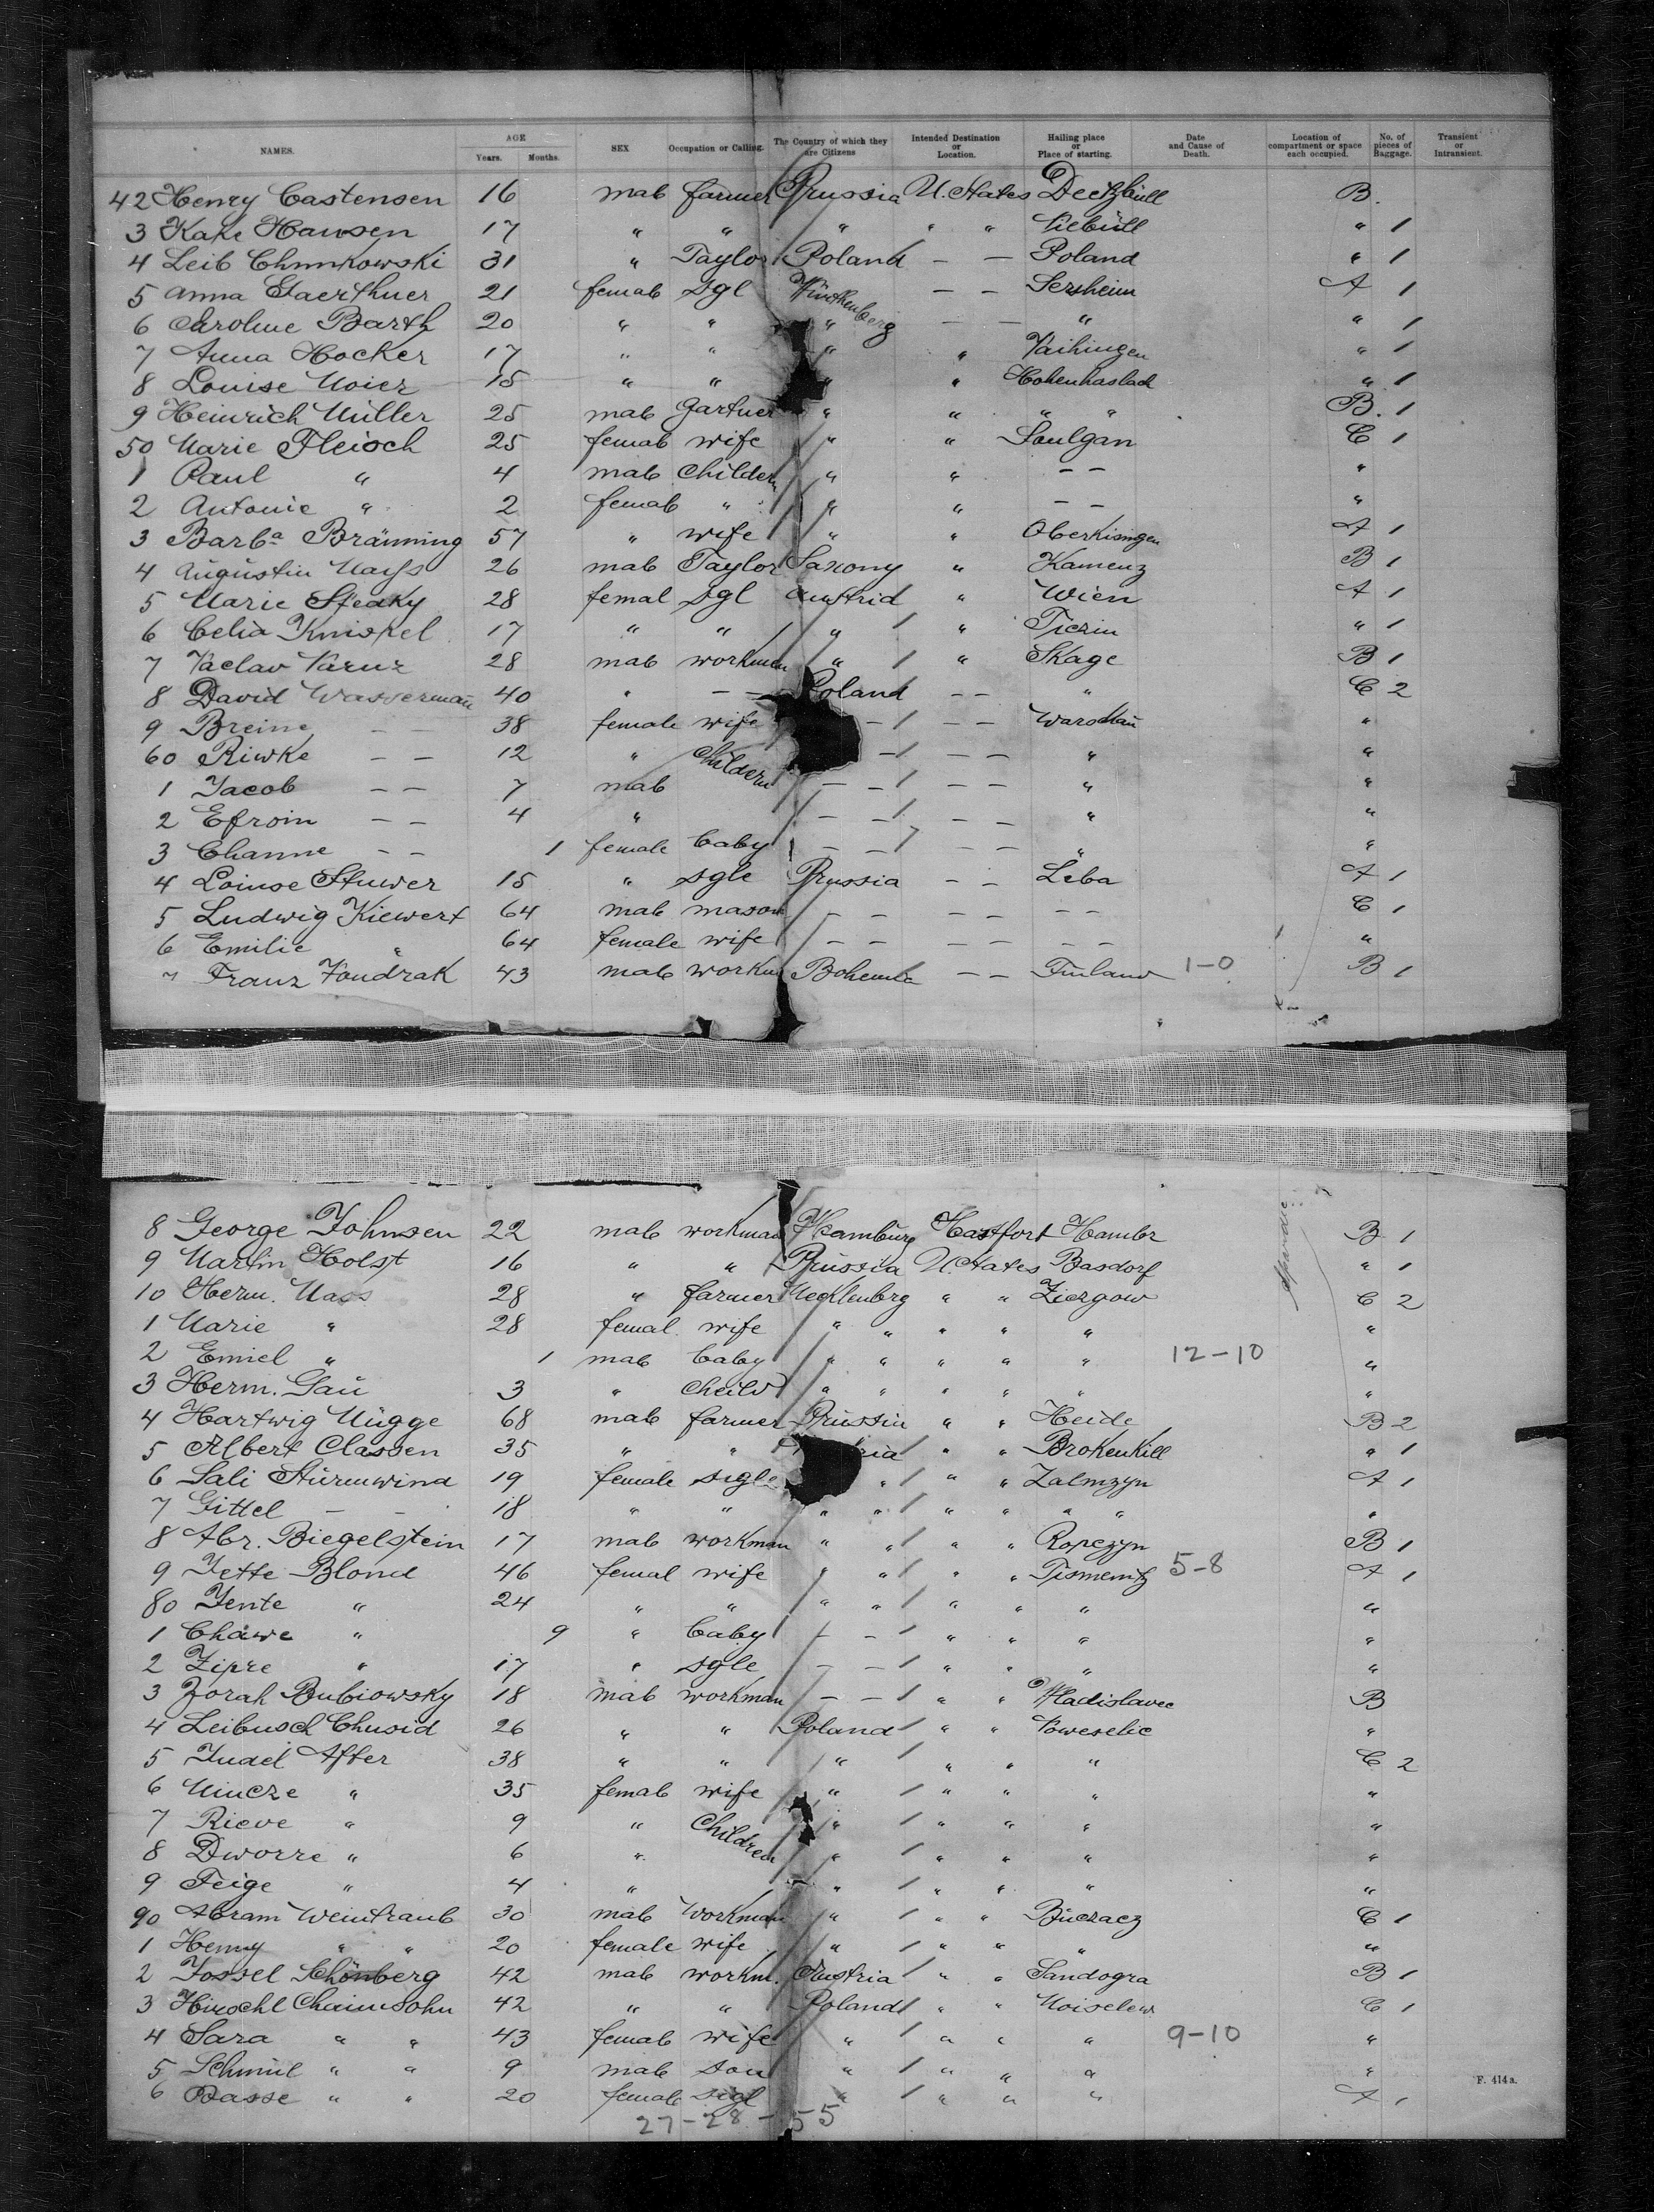 NAMES. AGE Years. Months. SEX Occupation or Calling. The Country of which they are Citizens Intended Destination or Location. Hailing place or Place of starting. Date and Cause of Death. Location of compartment or space each occupied. No. of pieces of Baggage. Transient or Intransient.
42 Henry Castensen 16 male farmer Prussia U. States Deetzbüll B.
3 Kake Hansen 17 " " " " " " 1
4 Leib 31 " Taylor Poland — — Poland " 1
5 Anna Gaerthner 21 female sgl Würthenberg — — Sersheim A 1
6 Caroline Barth 20 " " " — — " " 1
7 Anna Hocker 17 " " " " Vaihingen " 1
8 Louise Moier 15 " " " " Hohenhaslach " 1
9 Heinrich Müller 25 male Gartner " " " " B. 1
50 Marie Fleisch 25 female wife " " Saulgan C 1
1 Paul " 4 male Childern " " — — "
2 Antonie " 2 female " " " — — "
3 Barba Bränning 57 " wife " " A 1
4 Augustin 26 male Taylor Saxony " Kamenz B 1
5 Marie 28 femal sgl Austria " Wien A 1
6 Celia Kniskel 17 " " " " " 1
7 Vaclav 28 male workman " " Skage B 1
8 David Wasserman 40 " — — Poland — — " C 2
9 Breine — — 38 female wife — — — Warschau "
60 Riwke — — 12 " Childern — — — " "
1 Jacob — — 7 male — — — — " "
2 Efroim — — 4 " — — — — " "
3 Channe — — 1 female baby — — — — " "
4 Louise Stuwer 15 " sgle Prussia — — Leba A 1
5 Ludwig Kiewert 64 male mason — — — — — — C 1
6 Emilie " 64 female wife — — — — — — "
7 Franz Vondrak 43 male workm Bohemia — — 1-0 B 1
8 George Johnsen 22 male workman Hamburg Hartfort Hambr B 1
9 Martin Holst 16 " " Prussia U. States Basdorf " 1
10 Herm. Mass 28 " farmer Mecklenbrg " " Ziergow C 2
1 Marie " 28 femal wife " " " " " "
2 Emiel " 1 male baby " " " " " 12-10 "
3 Herm. Gau 3 " Cheild " " " " " "
4 Hartwig Mügge 68 male farmer Prussia " " Heide B 2
5 Albert Classen 35 " " " " " 1
6 Sali Sturmwind 19 female sigle " " " Zalmzyn A 1
7 Gittel — — 18 " " " " " " " " "
8 Abr. Biegelstein 17 male workman " " " " Ropczyn B 1
9 Jette Blond 46 femal wife " " " " Tismenitz 5-8 A 1
80 Jente " 24 " " " " " " " "
1 Chawe " 9 " baby — — " " " "
2 Zipre " 17 " sgle — — " " " "
3 Zorah Bubiowsky 18 male workman — — " " Wladislawee B
4 Leibusch Chusid 26 " " Poland " " "
5 Judel After 38 " " " " " " C 2
6 Mincze " 35 female wife " " " " "
7 Rieve " 9 " Children " " " " "
8 Dworre " 6 " " " " " "
9 Feige " 4 " " " " " "
90 Abram Weintraub 30 male Workman " " " Buczacz C 1
1 Henny " " 20 female wife " " " " "
2 Jossel Schönberg 42 male workm. Austria " " Sandogra B 1
3 Hirschl Chaimsohn 42 " " Poland " " C 1
4 Sara " " 43 female wife " " " " 9-10 "
5 Schmul " " 9 male son " " " " "
6 Basse " " 20 female sigl " " " " A 1
27-28-55
F. 414a.